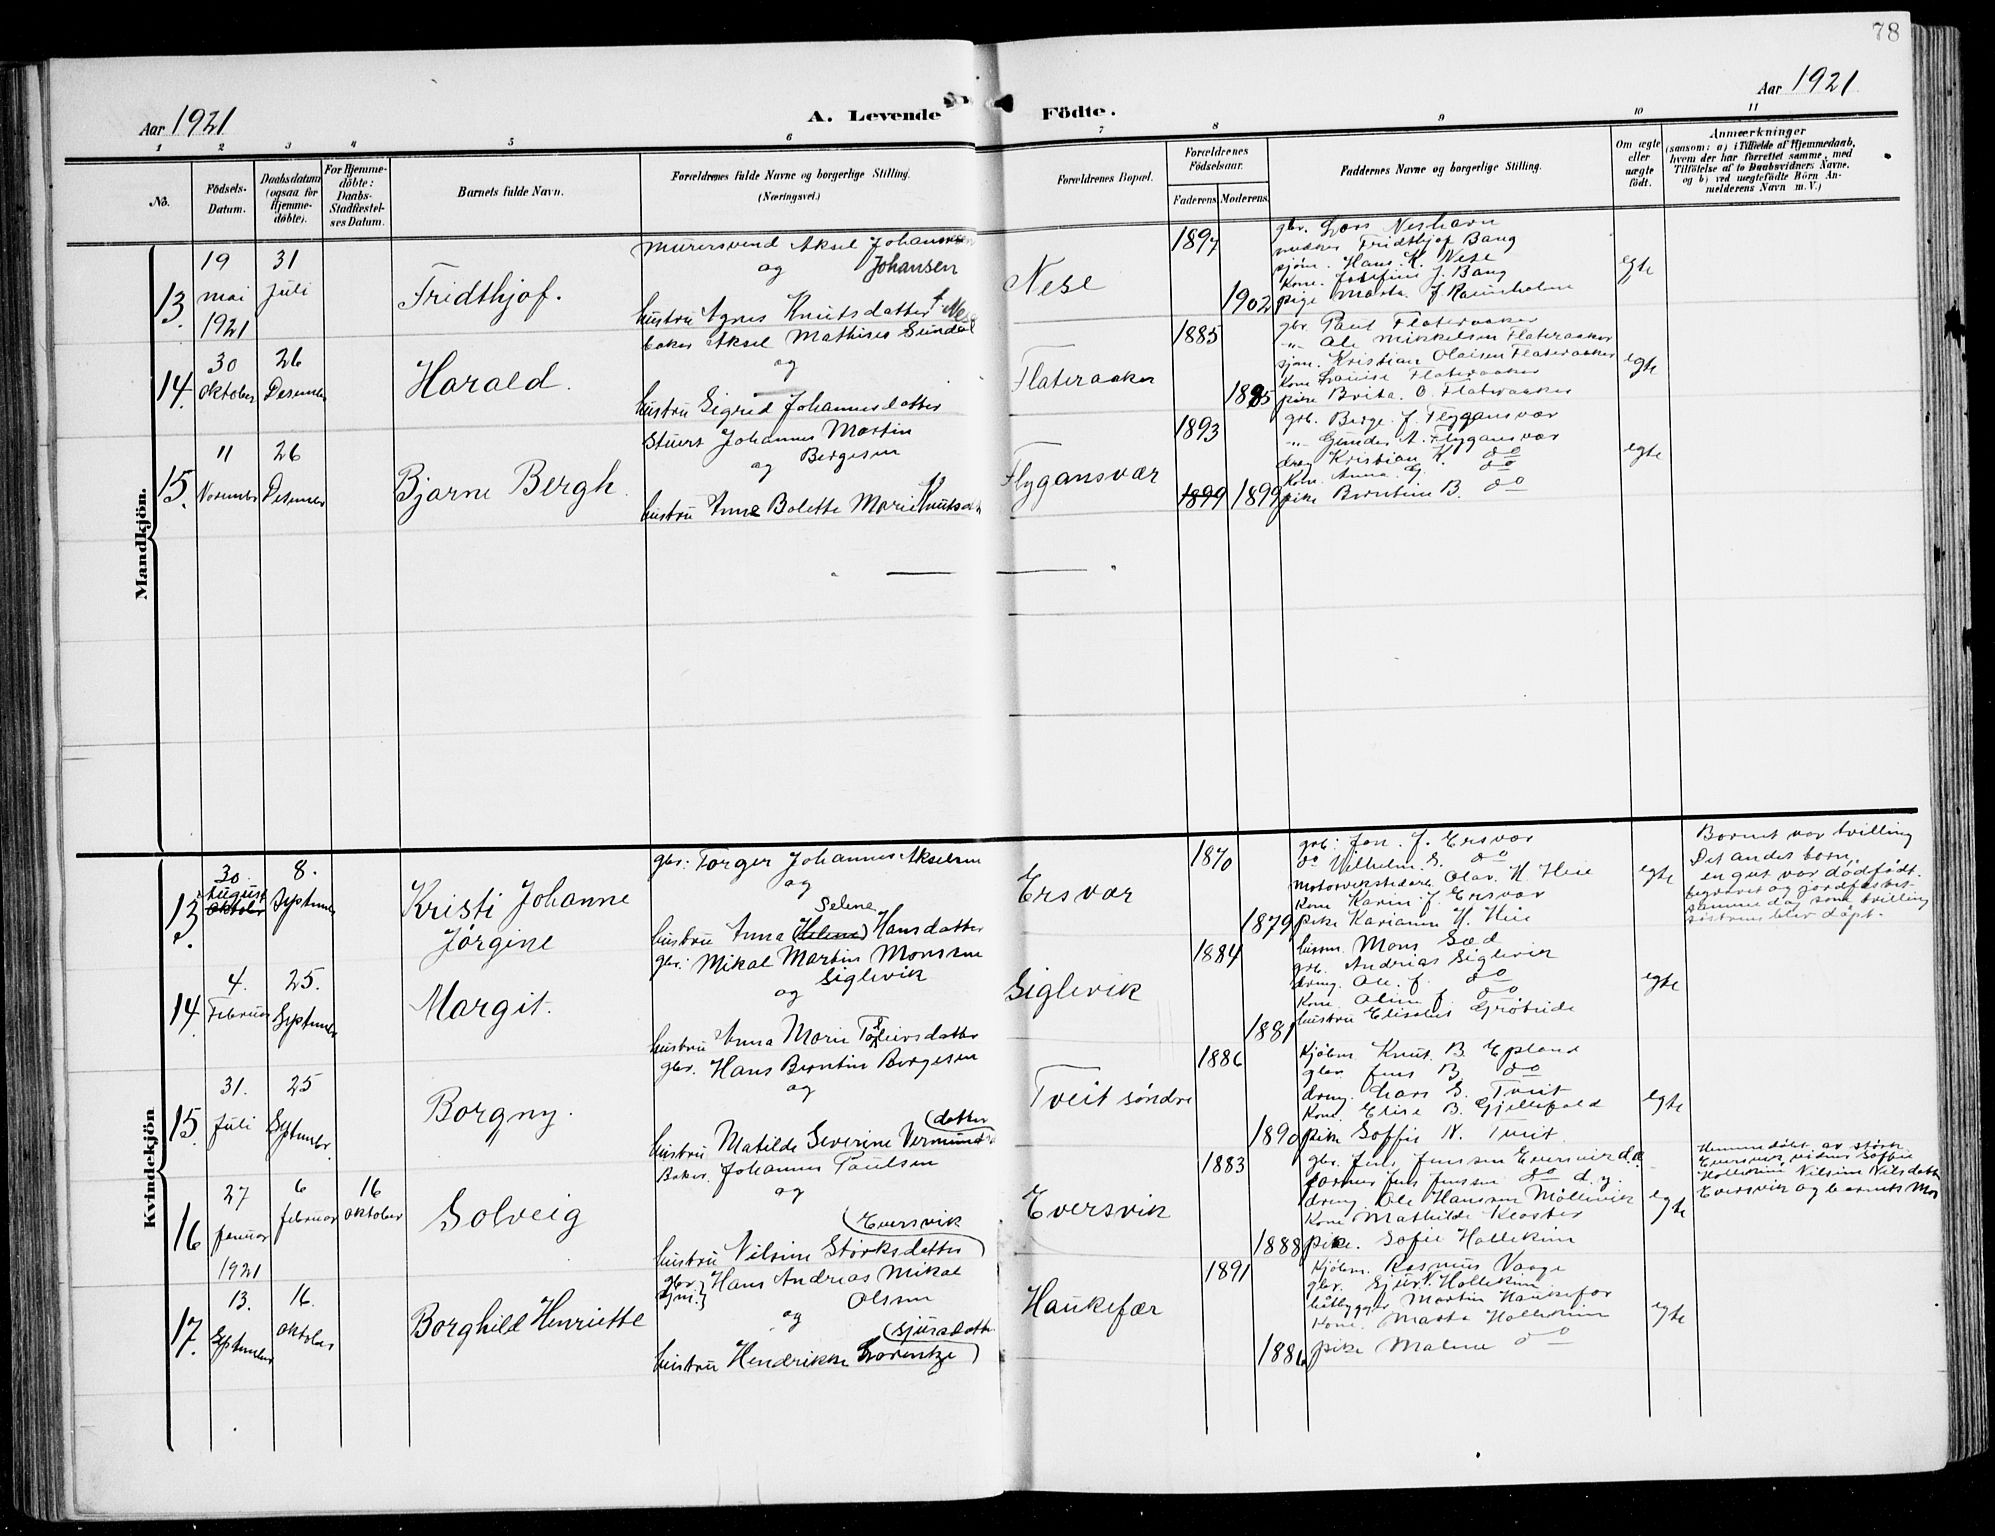 78
Aar 1921
A. Levende Födte.
Aar 1921
1 2 3 4 5 6 7 8 9 10 11
No.
Födsels-
Datum.
Daabsdatum
(ogsaa for
Hjemme-
döbte).
For Hjemme-
döbte:
Daabs-
Stadfæstel-
ses Datum.
Barnets fulde Navn.
Forældrenes fulde Navne og borgerlige Stilling.
(Næringsvei.)
Forældrenes Bopæl.
Forældrenes
Födselsaar.
Faderens. Moderens.
Faddernes Navne og borgerlige Stilling.
Om ægte
eller
uægte
födt.
Anmærkninger
(saasom: a) i Tilfælde af Hjemmedaab,
hvem der har forrettet samme, med
Tilföielse af to Daabsvidners Navne,
og b) ved uægtefödte Börn An-
melderens Navn m. V.)
Mandkjön.
13.
19
mai
1921
31
Juli
Fridthjof.
Murersvend Aksel Johannesen
og Johansen
hustru Agnes Knutsdatter
Nese
1897
1902
gbr. Lars Neshavn
Fridthjof Bang
sjöm. Hans K. Nese
Kone. Josefine J. Bang
pige Marta J.
egte
14.
30
oktober
26
Desember
Harald.
baker Aksel Mathises Sundal
og
hustru Sigrid Johannesdatter
Flateraaker
1885
1885
gbr. Paul Flateraaker
" Ole Mikkelsen Flateraaker
sjöm. Kristian Olaisen Flateraaker
Kone Lovise Flateraaker
pike Brita O. Flateraaker
egte
15.
11
November
26
Desember
Bjarne Bergh.
Stuert Johannes Martin
og Bergesen
hustru Anne Bolette Marie Knutsdt
Flygansvær
1893
1899 1899
grb. Berge J. Flygansvær
" Gunder A. Flygansvær
dreng Kristian K. do
Kone. Anna G. do
pike Berntine B. do
egte
Kvindekjön
13.
30.
August
oktober
8.
September
Kristi Johanne
Jørgine
gbr. Torger Johannes Akselsen
og
Selene
hustru Anna (Helene) Hansdatter
Ersvær
1870
1879
grb. Jon J. Ersvær
do Vilhelm S. do
Motorverkstedarb. Olav H. Heie
Kone Karen J. Ersvær
pike Karianne H. Heie
egte
Barnet var tvilling
Det andet barn,
en gut var dödfödt.
begravet og jordfæstet
samme dag som tvilling
søstrene blev döpt.
14.
4.
Februar
25.
September
Margit.
gbr. Mikal Martin Monsen
Siglevik
og
hustru Anna Marie Tolleivsdatter
Siglevik
1884
1881
husm. Mons Sæd
grb. Andrias Siglevik
dreng. Ole J. do
Kone Oline J. do
hustru Elisabet Grøteide
egte
15.
31.
Juli
25
September
Borgny.
gbr. Hans Berntin Bergesen
og
(datter
hustru Matilde Severine Vermund
Tveit søndre
1886
1890
Kjöbm. Knut B. Epland
gbr. Jens B. do
dreng. Lars S. Tveit
Kone Elise B. Gjellefald
pike Soffie N. Tveit.
egte
16
27
januar
1921
6
februar
16
oktober
Solveig
Baker. Johannes Paulsen
og
(Eversvik
hustru Nilsine Størksdatter)
Eversvik
1883
1888
gbr. Jens Jensen Eversvik d.e.
Jens Jensen do d.y.
dreng Ole Hansen Möllevik
Kone Mathilde Kloster
pike. Sofie Hallekim
egte
Hjemmedöbt av Størk
Eversvik, vidner Soffie
Hallekim Nilsine Nilsdatter
Eversvik og barnets Mor
17.
13.
September
16.
oktober
Borghild Henriette
gbr.
sjm.} Hans Andrias Mikal
Olsen
og
(Sjursdatter
hustru Hendrikke Lorentze)
Haukefær
1891
1886
Kjöbm. Rasmus Vaage
gbr. Sjur N. Hallekim
båtbygger Martin Haukefær
Kone. Marta Hallekim
pike Malene do
egte